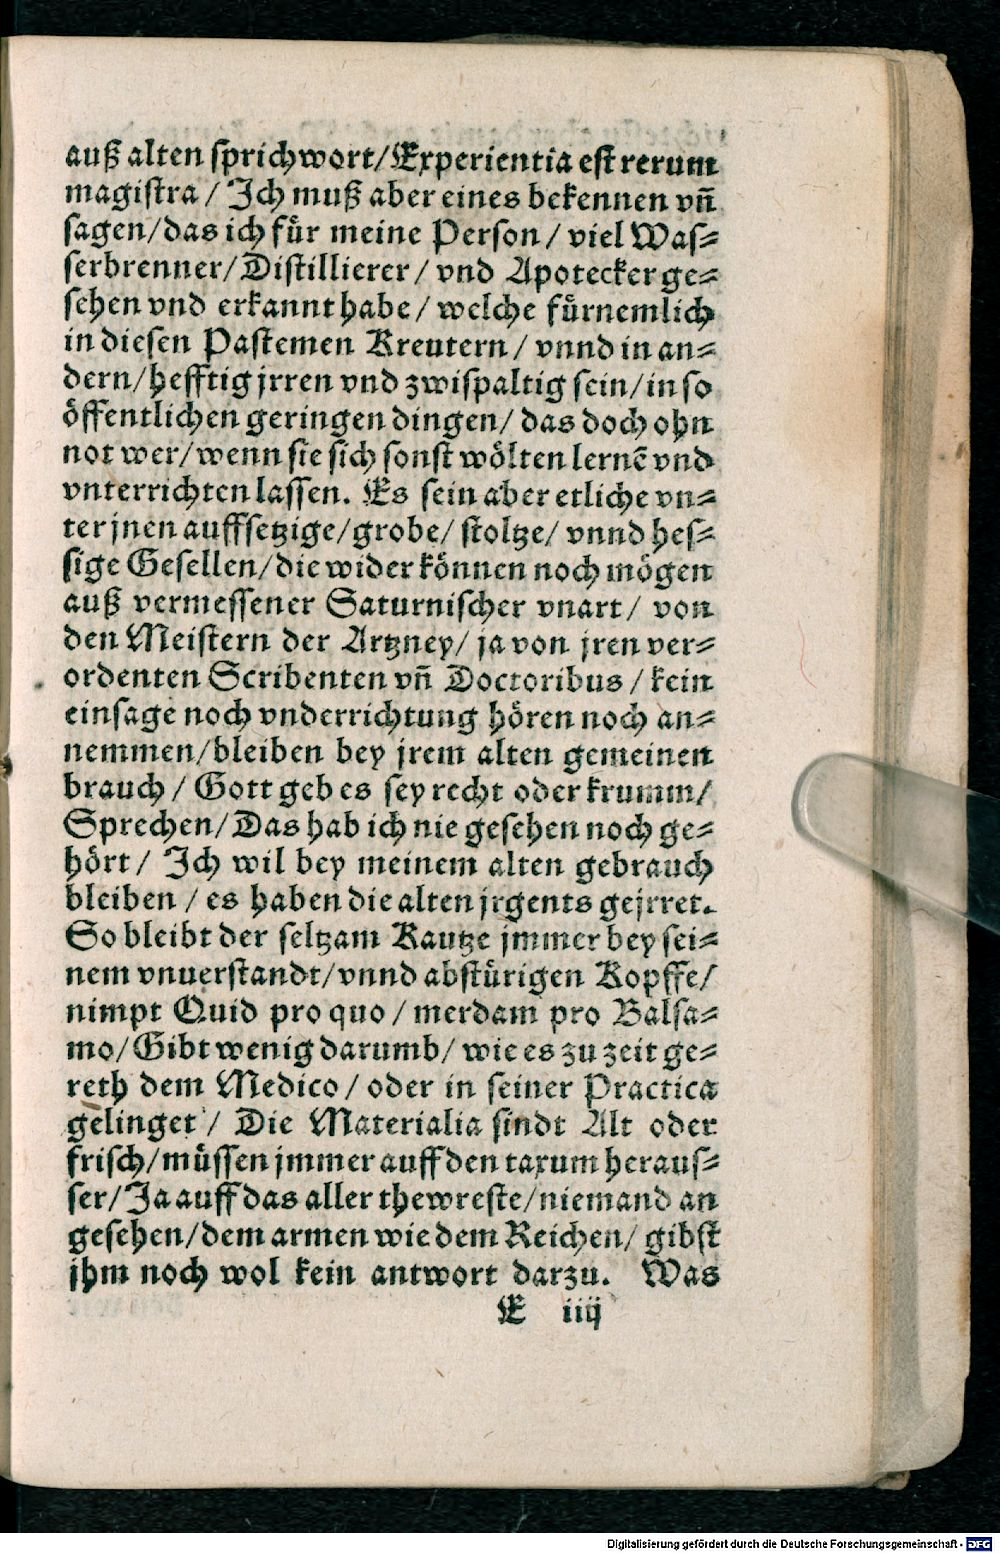 auß alten sprichwort/Experientia est rerum
magistra / Ich muß aber eines bekennen vñ
sagen/das ich für meine Person / viel Was⸗
serbrenner/Distillierer / vnd Apotecker ge⸗
sehen vnd erkannt habe / welche fürnemlich
in diesen Pastemen Kreutern / vnnd in an⸗
dern/hefftig jrren vnd zwispaltig sein/in so
öffentlichen geringen dingen/ das doch ohn
not wer/wenn sie sich sonst wölten lernẽ vnd
vnterrichten lassen. Es sein aber etliche vn⸗
ter jnen auffsetzige/grobe/ stoltze/ vnnd hes⸗
sige Gesellen/die wider können noch mögen
auß vermessener Saturnischer vnart/ von
den Meistern der Artzney/ ja von jren ver⸗
ordenten Scribenten vñ Doctoribus / kein
einsage noch vnderrichtung hören noch an⸗
nemmen/bleiben bey jrem alten gemeinen
brauch / Gott geb es sey recht oder krumm/
Sprechen/Das hab ich nie gesehen noch ge⸗
hört/ Ich wil bey meinem alten gebrauch
bleiben / es haben die alten jrgents gejrret.
So bleibt der seltzam Kautze jmmer bey sei⸗
nem vnuerstandt/vnnd abstürigen Kopffe/
nimpt Quid pro quo / merdam pro Balsa⸗
mo/Gibt wenig darumb/ wie es zu zeit ge⸗
reth dem Medico / oder in seiner Practica
gelinget / Die Materialia sindt Alt oder
frisch/müssen jmmer auff den taxum heraus⸗
ser/Ja auff das aller thewreste/niemand an
gesehen/dem armen wie dem Reichen/ gibst
jhm noch wol kein antwort darzu. Was
E iiij
Digitalisierung gefördert durch die Deutsche Forschungsgemeinschaft - DFG